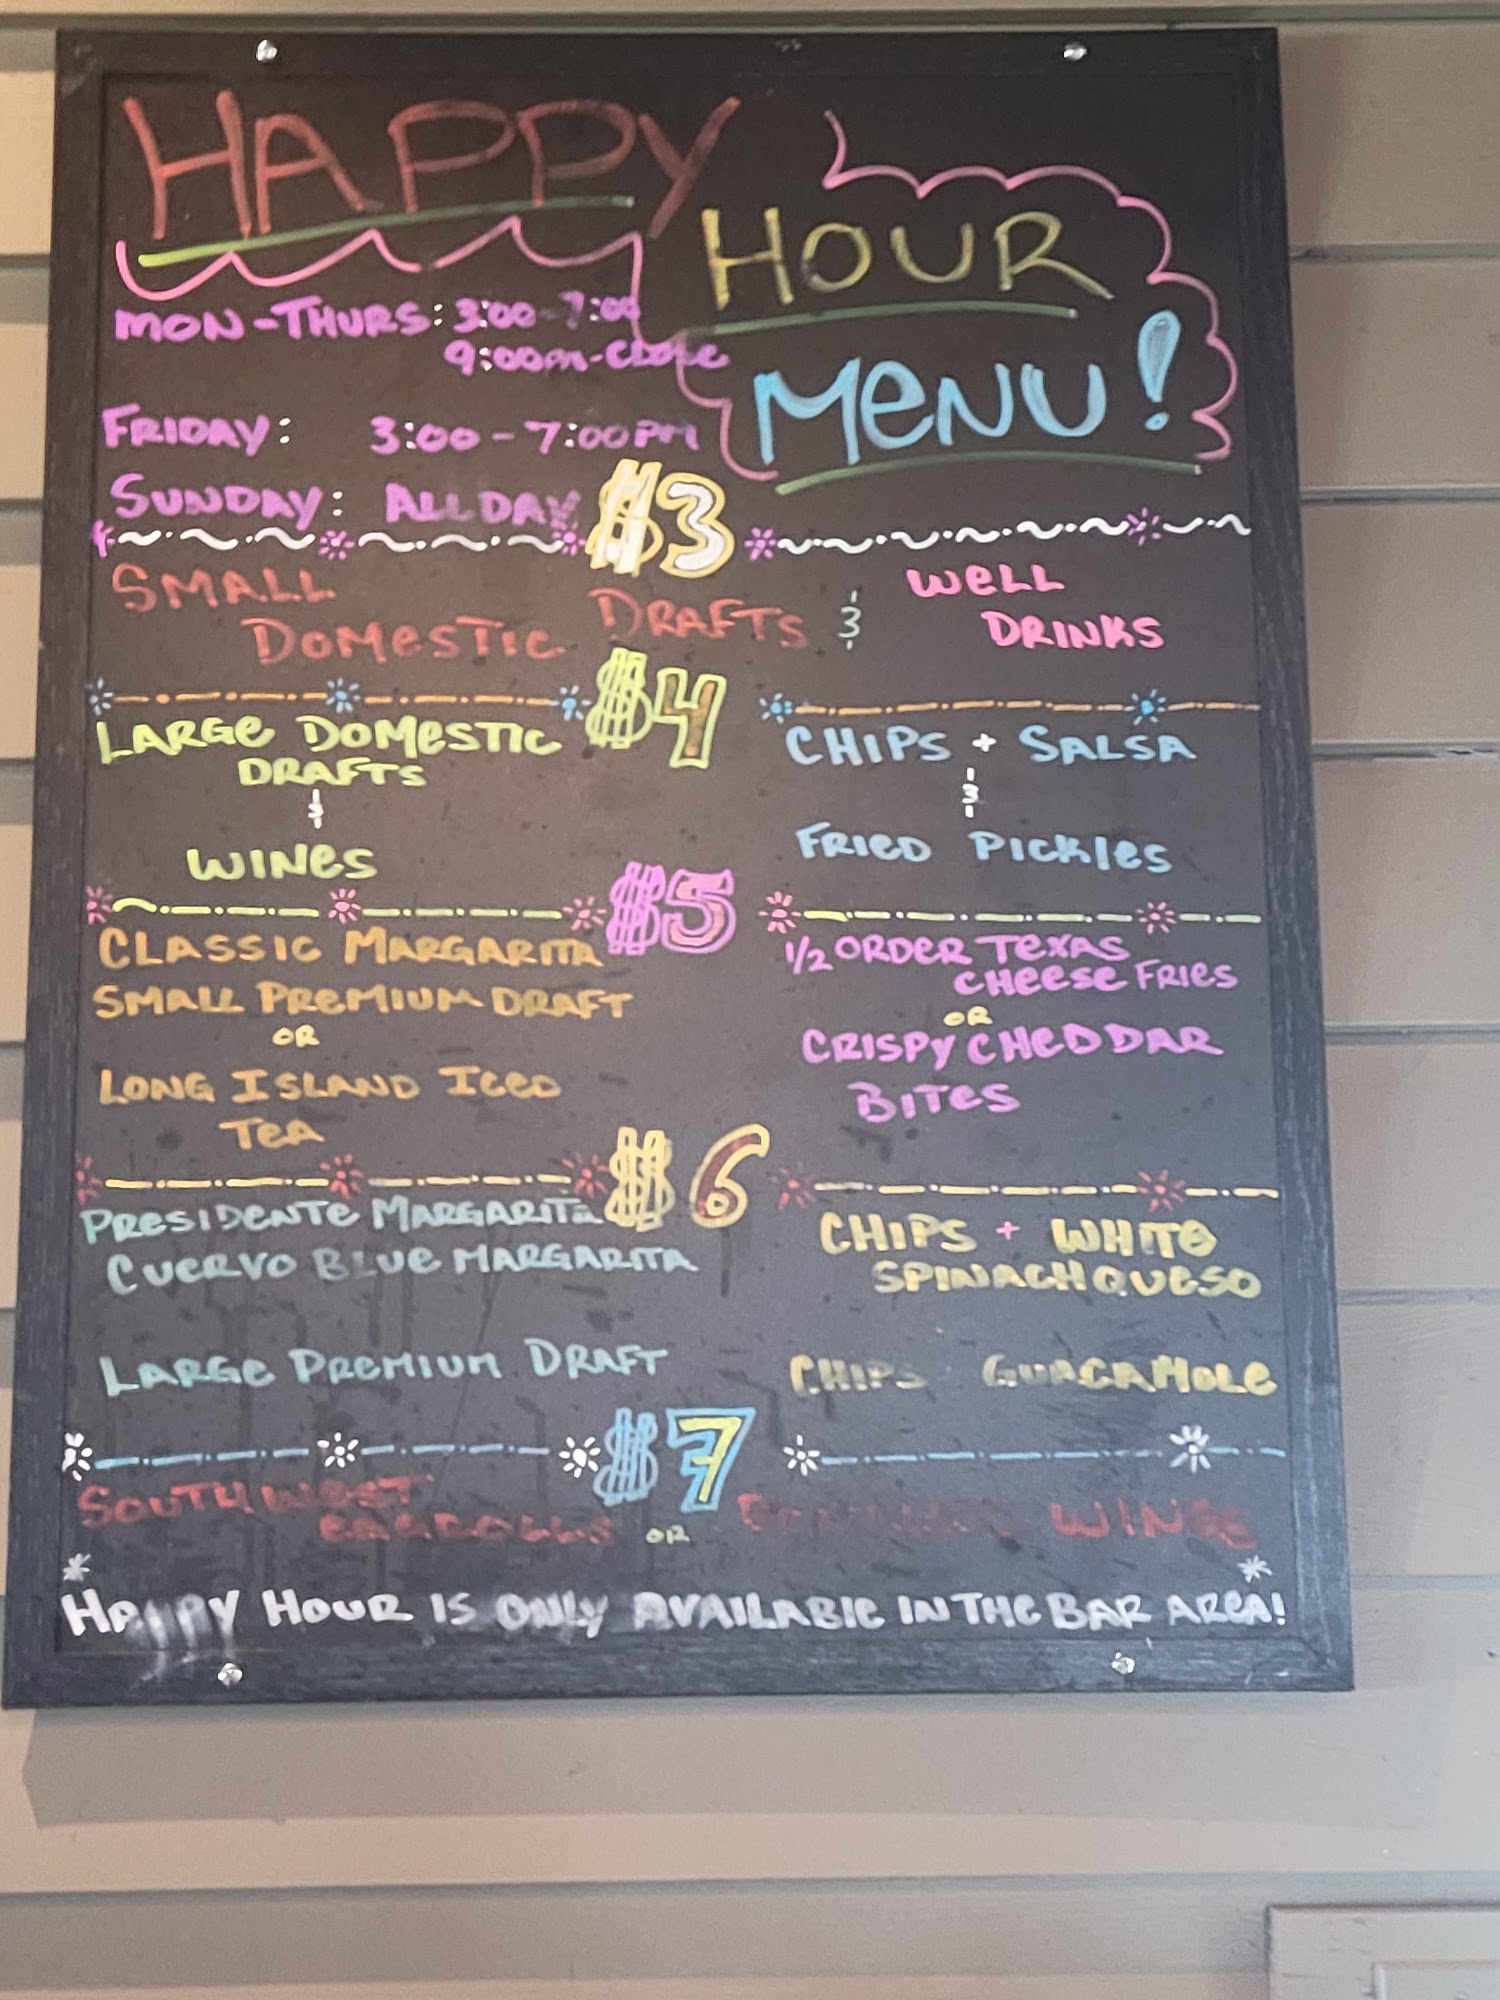 HAPPY
HOUR
MENU!
MON-THURS: 3:00-7:00
9:00PM-CLOSE
FRIDAY: 3:00-7:00PM
SUNDAY: ALL DAY
$3
SMALL
DOMESTIC DRAFTS &
WELL
DRINKS
$4
LARGE DOMESTIC
DRAFTS
&
WINES
CHIPS + SALSA
&
FRIED PICKLES
$5
CLASSIC MARGARITA
SMALL PREMIUM DRAFT
OR
LONG ISLAND ICED
TEA
1/2 ORDER TEXAS
CHEESE FRIES
OR
CRISPY CHEDDAR
BITES
$6
PRESIDENTE MARGARITA
CUERVO BLUE MARGARITA
LARGE PREMIUM DRAFT
CHIPS + WHITE
SPINACH QUESO
CHIPS GUACAMOLE
$7
SOUTHWEST
EGGROLLS OR WINGS
* *
HAPPY HOUR IS ONLY AVAILABLE IN THE BAR AREA!